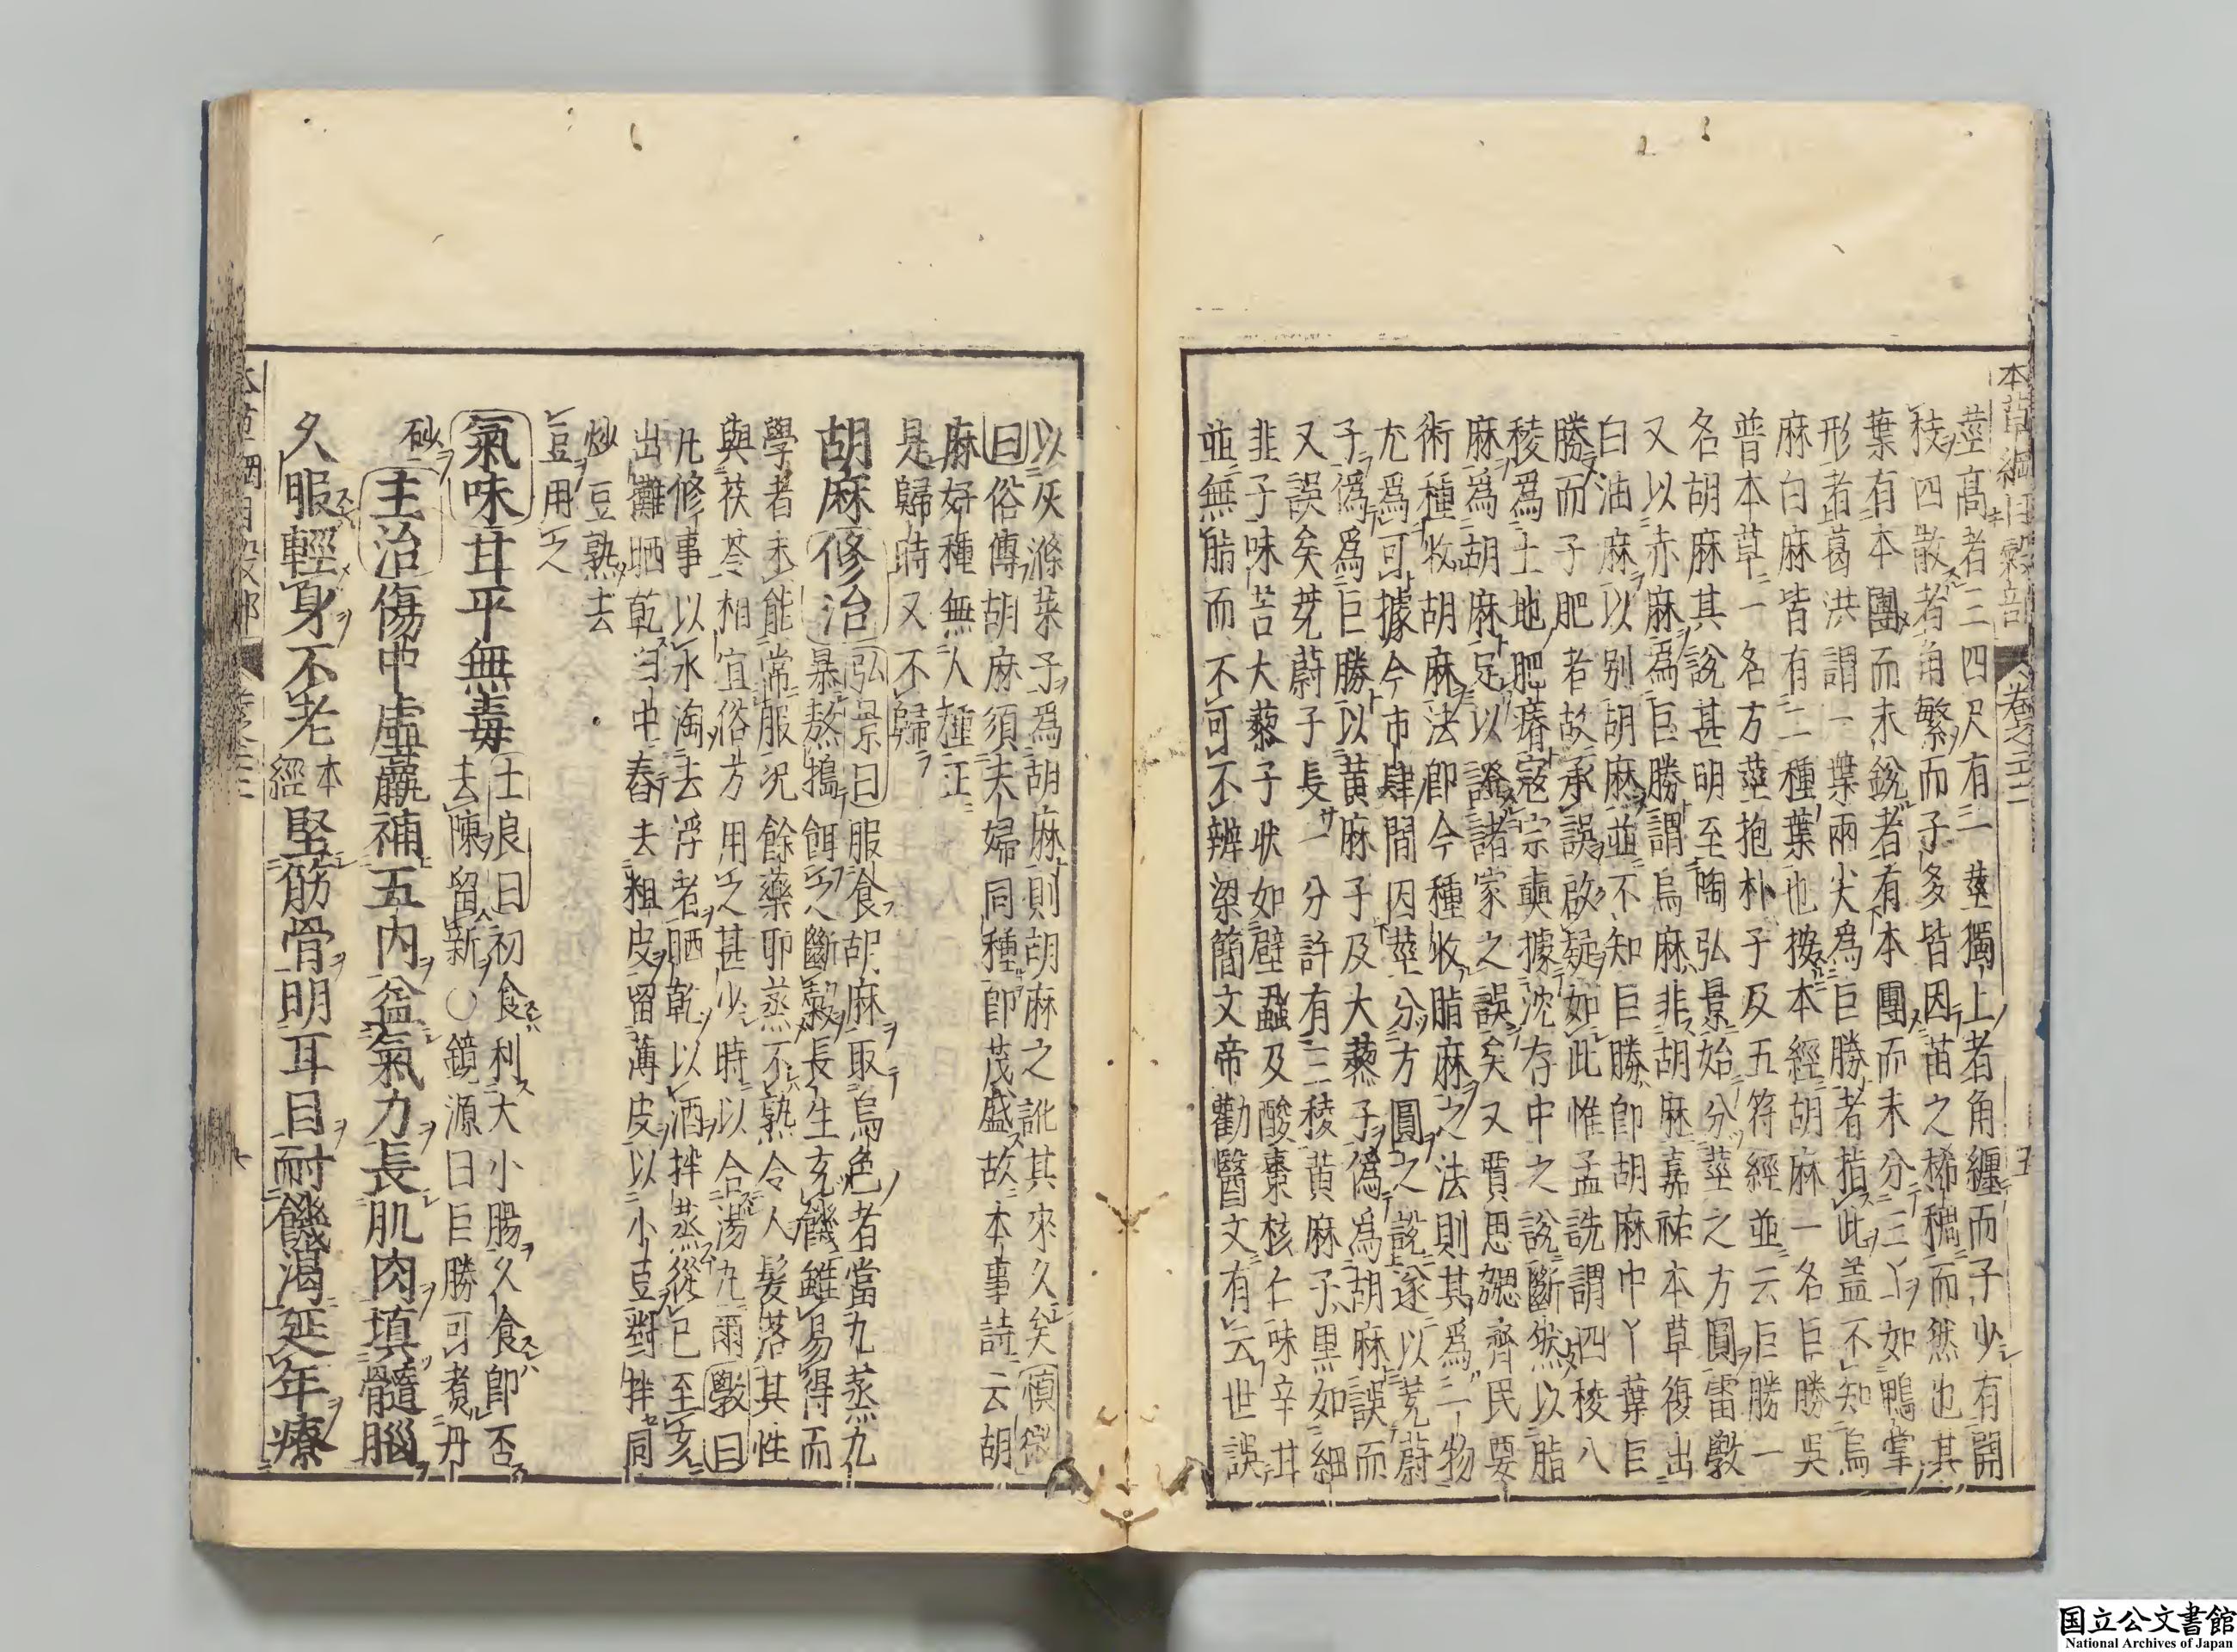 本草綱目穀部 卷之二十二 五
莖高者三四尺有一莖獨上者角纏而子少有開
枝四散者角繁而子多皆因苗之稀稠而然也其
葉有本團而末銳者有本團而末分三丫如鴨掌
形者葛洪謂一葉兩尖爲巨勝者指此蓋不知烏
麻白麻皆有二種葉也按本經胡麻一名巨勝吳
普本草一名方莖抱朴子及五符經並云巨勝一
名胡麻其說甚明至陶弘景始分莖之方圓雷斅
又以赤麻爲巨勝謂烏麻非胡麻嘉祐本草復出
白油麻以别胡麻並不知巨勝卽胡麻中丫葉巨
勝而子肥者故承誤啟疑如此惟孟詵謂四稜八
稜爲土地肥瘠寇宗奭據沈存中之說斷然以脂
麻爲胡麻足以證諸家之誤矣又賈思勰齊民要
術種收胡麻法卽今種收脂麻之法則其爲一物
尤爲可據今市肆間因莖分方圓之說遂以茺蔚
子僞爲巨勝以黃麻子及大藜子僞爲胡麻誤而
又誤矣茺蔚子長一分許有三稜黃麻子黑如細
韭子味苦大藜子狀如壁蝨及酸棗核仁味辛甘
並無脂而不可不辨梁簡文帝勸醫文有云世誤
以灰滌菜子爲胡麻則胡麻之訛其來久矣愼微
曰俗傳胡麻須夫婦同種卽茂盛故本事詩云胡
麻好種無人種正
是歸時又不歸
胡麻修治弘景曰服食胡麻取烏色者當九蒸九
暴熬搗餌之斷穀長生充饑雖易得而
學者未能常服況餘藥耶蒸不熟令人髮落其性
與茯苓相宜俗方用之甚少時以合湯丸爾斅曰
凡修事以水淘去浮者晒乾以酒拌蒸從巳至亥
出攤晒乾臼中舂去粗皮留薄皮以小豆對拌同
炒豆熟去
豆用之
氣味甘平無毒士良曰初食利大小腸久食卽否
去陳留新○鏡源曰巨勝可煮丹
砂
主治傷中虛羸補五內益氣力長肌肉填髓腦
久服輕身不老本經堅筋骨明耳目耐饑渴延年療
国立公文書館
National Archives of Japan